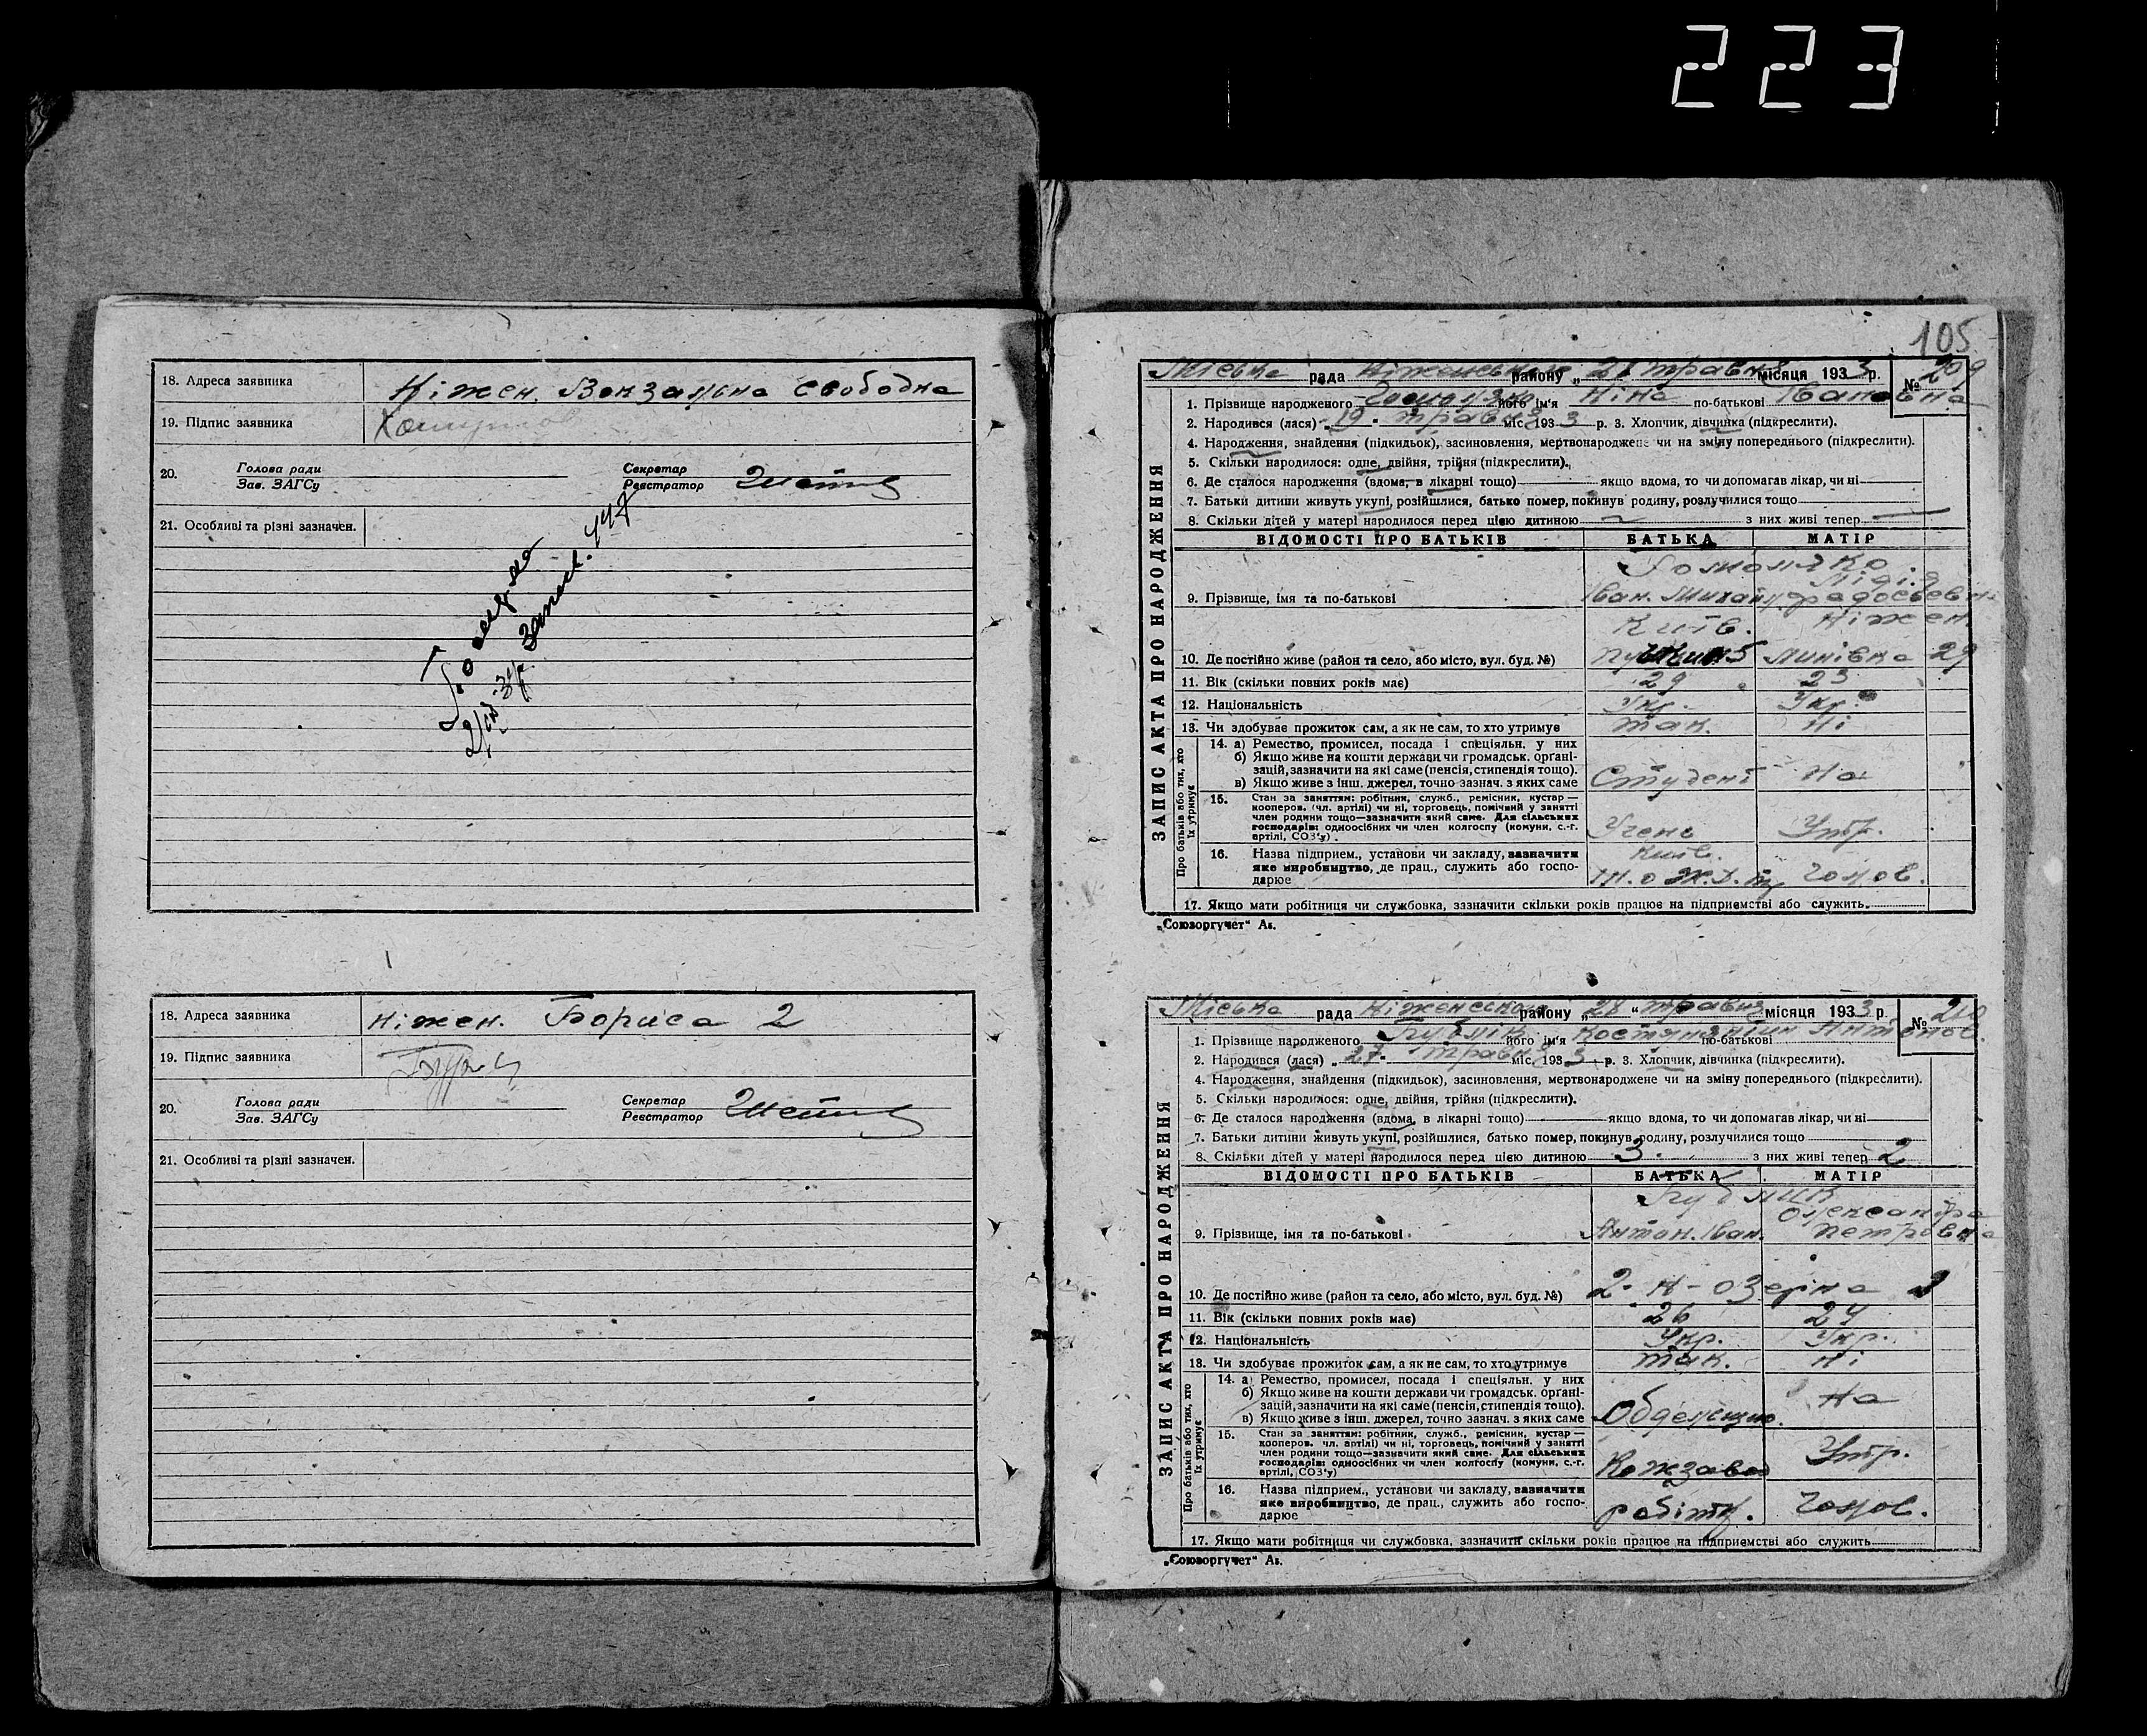 223
18. Адреса заявника Ніжен. Вокзальна свободна
19. Підпис заявника
20. Голова ради
Зав. ЗАГСу
Секретар
Реєстратор
21. Особливі та різні зазначен.
18. Адреса заявника Ніжен. Бориса 2
19. Підпис заявника
20. Голова ради
Зав. ЗАГСу
Секретар
Реєстратор
21. Особливі та різні зазначен.
105
ЗАПИС АКТА ПРО НАРОДЖЕННЯ
Міська рада Ніженського району „ 28 травня місяця 1933 р. № 209
1. Прізвище народженого його ім'я Ніна по-батькові Івановна
2. Народився (лася) 19 травня міс. 1933 р. 3. Хлопчик, дівчинка (підкреслити).
4. Народження, знайдення (підкидьок), засиновлення, мертвонароджене чи на зміну попереднього (підкреслити).
5. Скільки народилося: одне, двійня, трійня (підкреслити).
6. Де сталося народження (вдома, в лікарні тощо) якщо вдома, то чи допомагав лікар, чи ні
7. Батьки дитини живуть укупі, розійшлися, батько помер, покинув родину, розлучилися тощо
8. Скільки дітей у матері народилося перед цією дитиною — з них живі тепер —
ВІДОМОСТІ ПРО БАТЬКІВ БАТЬКА МАТІР
9. Прізвище, імя та по-батькові Іван. Михайл. Лідія Федосьевна
Київ. Ніжен.
10. Де постійно живе (район та село, або місто, вул. буд. №) 29
11. Вік (скільки повних років має) 29 23
12. Національність Укр. Укр.
13. Чи здобуває прожиток сам, а як не сам, то хто утримує так. Ні
Про батьків або тих, хто їх утримує
14. а) Ремество, промисел, посада і спеціяльн. у них
б) Якщо живе на кошти держави чи громадськ. органі-
зацій, зазначити на які саме (пенсія, стипендія тощо).
в) Якщо живе з інш. джерел, точно зазнач. з яких саме Студент На
15. Стан за заняттям: робітник, служб., ремісник, кустар —
кооперов. (чл. артілі) чи ні, торговець, помічний у занятті
член родини тощо—зазначити який саме. Для сільських
господарів: одноосібних чи член колгоспу (комуни, с.-г.
артілі, СОЗ'у). Учень Утр.
16. Назва підприєм., установи чи закладу, зазначити
яке виробництво, де прац., служить або госпо-
дарює Київ. Чолов.
17. Якщо мати робітниця чи службовка, зазначити скільки років працює на підприємстві або служить.
„Союзоргучет“ Ав.
ЗАПИС АКТА ПРО НАРОДЖЕННЯ
Міська рада Ніженського району „ 28 “ травня місяця 1933 р. № 210
1. Прізвище народженого Бублік його ім'я Костянтин по-батькові Антонов.
2. Народився (лася) „ 27 травня міс. 1933 р. 3. Хлопчик, дівчинка (підкреслити).
4. Народження, знайдення (підкидьок), засиновлення, мертвонароджене чи на зміну попереднього (підкреслити).
5. Скільки народилося: одне, двійня, трійня (підкреслити).
6. Де сталося народження (вдома, в лікарні тощо) якщо вдома, то чи допомагав лікар, чи ні
7. Батьки дитини живуть укупі, розійшлися, батько помер, покинув родину, розлучилися тощо
8. Скільки дітей у матері народилося перед цією дитиною 3. з них живі тепер 2
ВІДОМОСТІ ПРО БАТЬКІВ БАТЬКА МАТІР
Бублик
9. Прізвище, імя та по-батькові Антон. Іван. Олександра Петровна
10. Де постійно живе (район та село, або місто, вул. буд. №)
11. Вік (скільки повних років має) 26 24
12. Національність Укр. Укр.
13. Чи здобуває прожиток сам, а як не сам, то хто утримує так. Ні
Про батьків або тих, хто їх утримує
14. а) Ремество, промисел, посада і спеціяльн. у них
б) Якщо живе на кошти держави чи громадськ. органі-
зацій, зазначити на які саме (пенсія, стипендія тощо).
в) Якщо живе з інш. джерел, точно зазнач. з яких саме На
15. Стан за заняттям: робітник, служб., ремісник, кустар —
кооперов. чл. артілі) чи ні, торговець, помічний у занятті
член родини тощо—зазначити який саме. Для сільських
господарів: одноосібних чи член колгоспу (комуни, с.-г.
артілі, СОЗ'у) Кожзавод Утр.
16. Назва підприєм., установи чи закладу, зазначити
яке виробництво, де прац., служить або госпо-
дарює робітн. Чолов.
17. Якщо мати робітниця чи службовка, зазначити скільки років працює на підприємстві або служить
„Союзоргучет“ Ав.